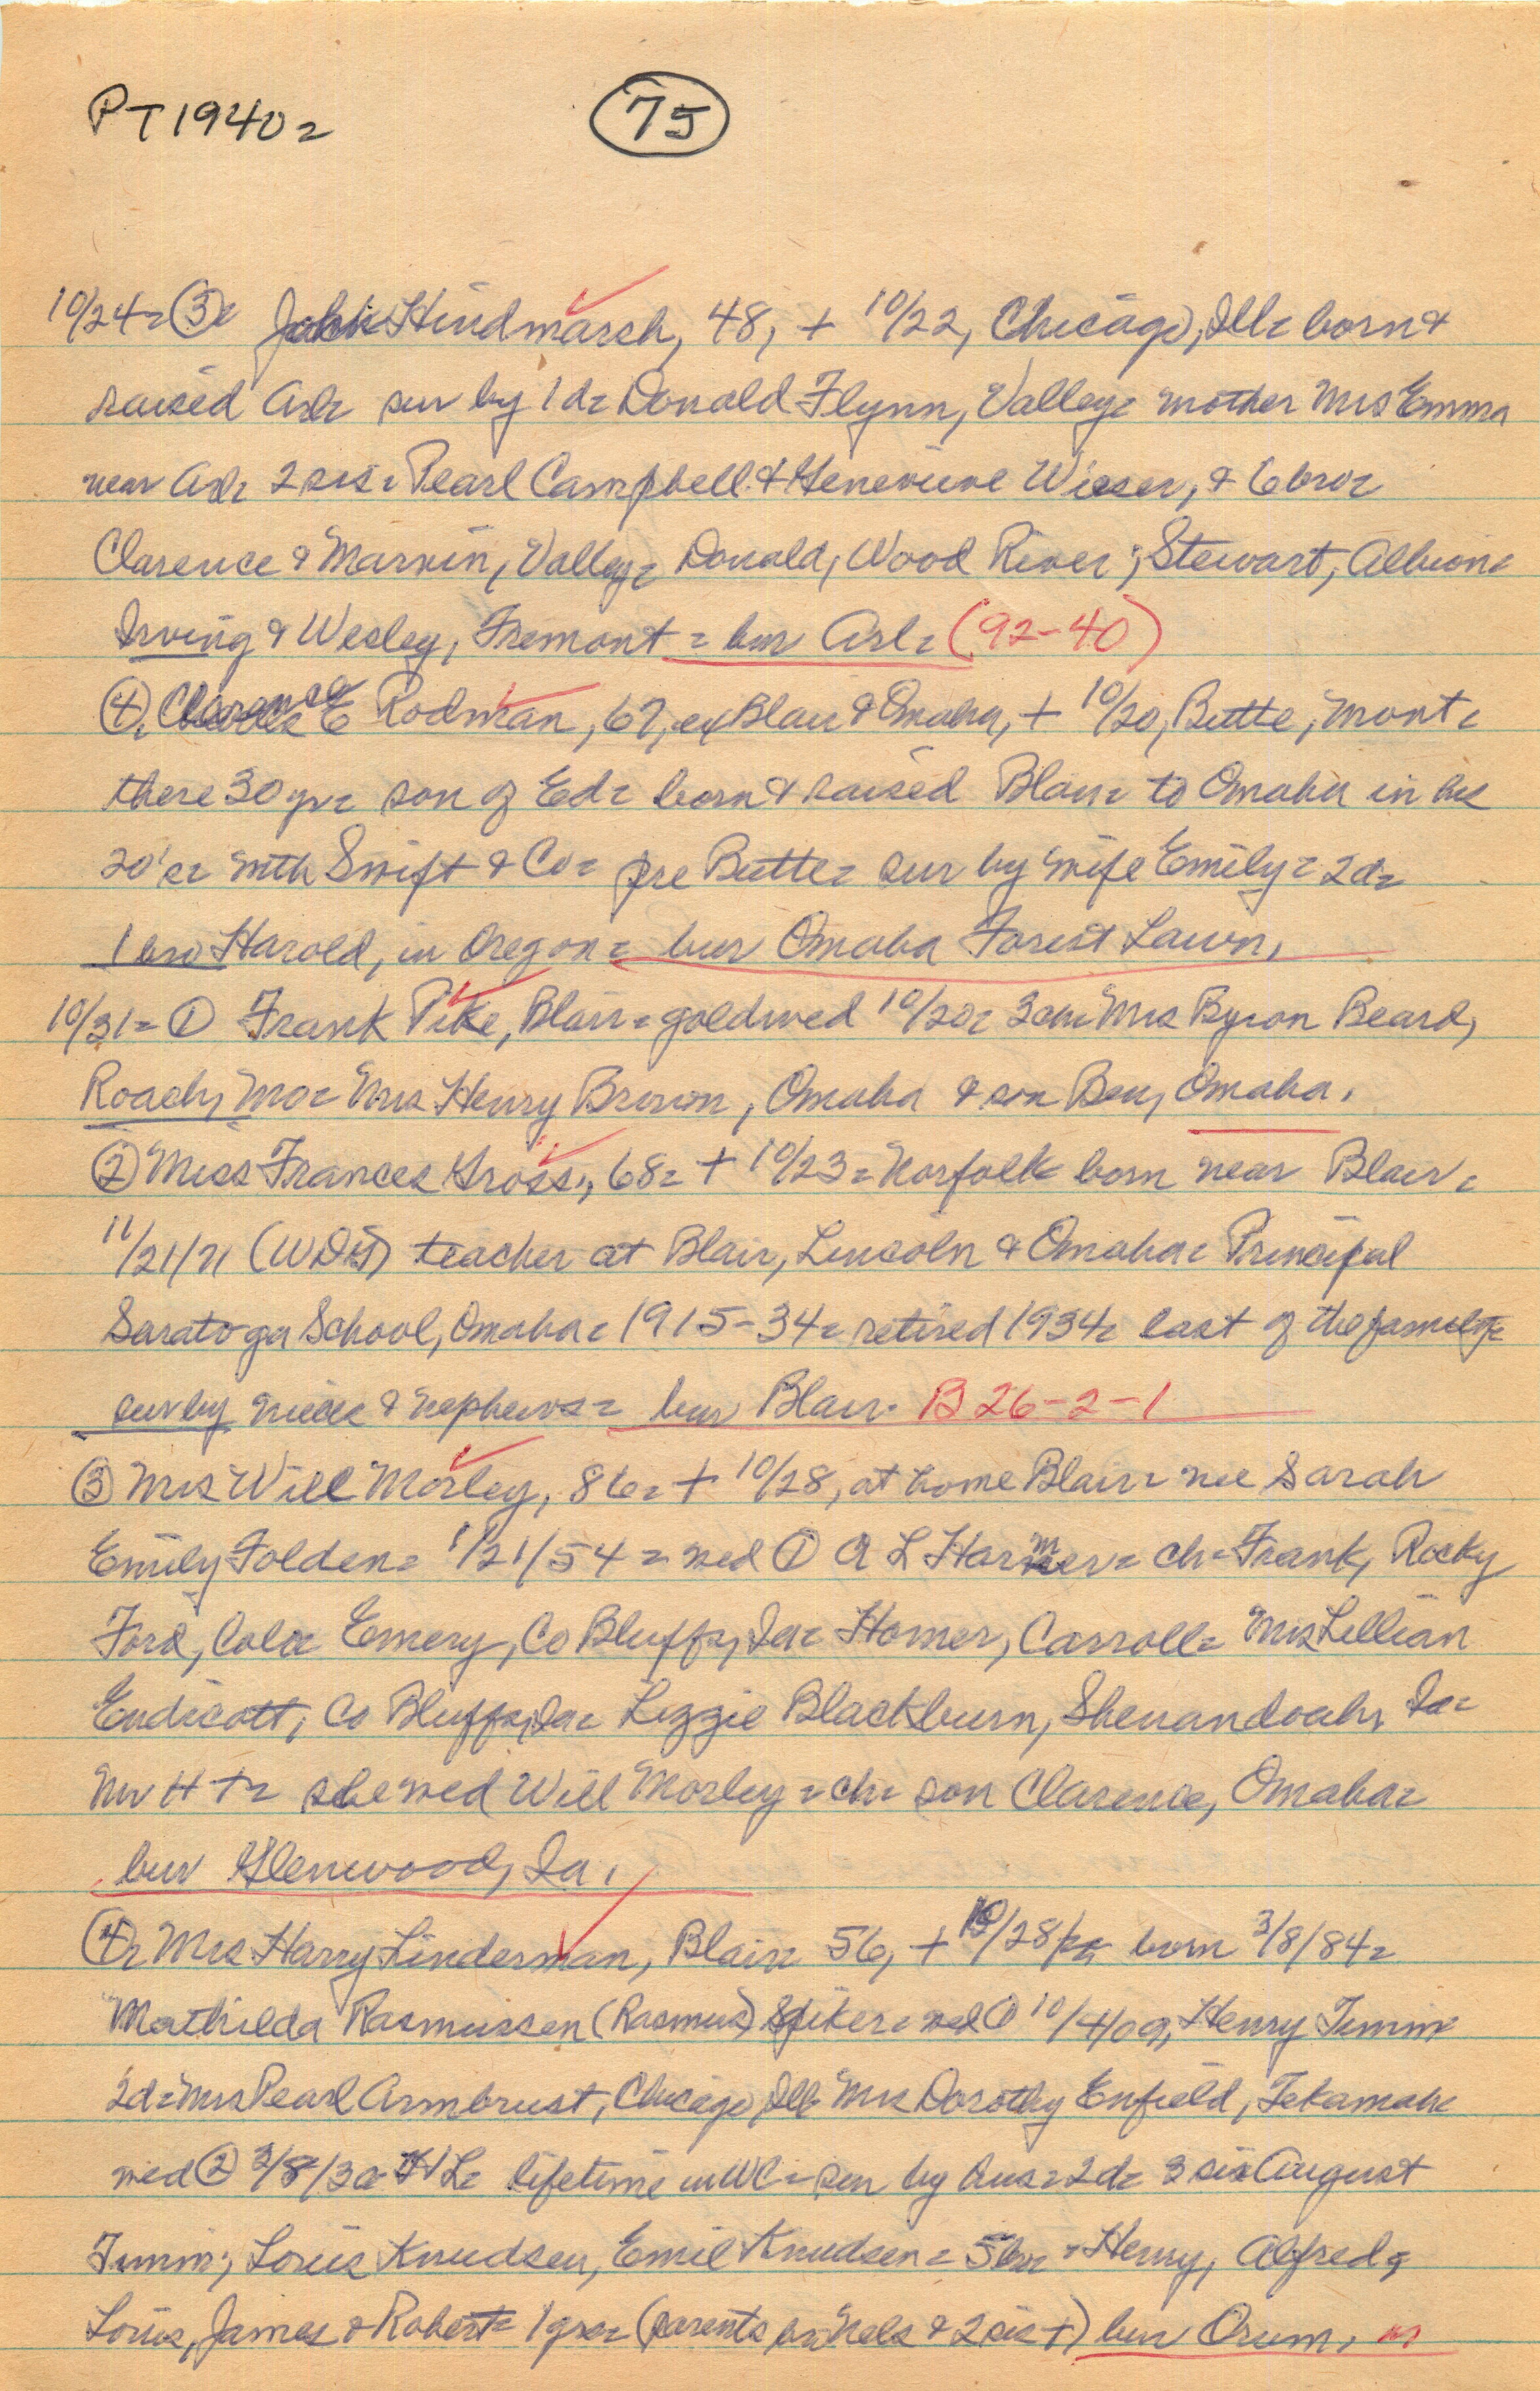 PT 1940=
75
10/24= ③= Hindmarsh, 48, + 10/22, Chicago, Ill= born &
raised Arl= sur by 1 d= Donald Flynn, Valley= mother Mrs Emma
near Arl= 2 sis= Pearl Campbell & Genevieve Wieser, & 6 bro=
Clarence & Marvin, Valley= Donald, Wood River; Stewart, Albion=
Irving & Wesley, Fremont = bur Arl= (92-40)
④= Clarence E Rodman, 67, ex Blair & Omaha, + 10/20, Butte, Mont=
there 30 yr= son of Ed= born & raised Blair= to Omaha in his
20's= with Swift & Co= pre Butte= sur by wife Emily= 2 d=
1 bro Harold, in Oregon= bur Omaha Forest Lawn,
10/31= ① Frank Pike, Blair= goldwed 10/20= 3 ch= Mrs Byron Beard,
Roach, Mo= Mrs Henry Brown, Omaha & son Ben, Omaha.
② Miss Frances Gross, 68= + 10/23= Norfolk born near Blair=
11/21/71 (WDG) teacher at Blair, Lincoln & Omaha= Principal
Saratoga School, Omaha= 1915-34= retired 1934= last of the family=
sur by niece & nephews= bur Blair. B 26-2-1
③ Mrs Will Morley, 86= + 10/28, at home Blair= nee Sarah
Emily Folden= 1/21/54= wed ① A L Harmer= ch= Frank, Rocky
Ford, Colo= Emery, Co Bluffs, Ia= Homer, Carroll= Mrs Lillian
Endicott, Co Bluffs, Ia= Lizzie Blackburn, Shenandoah, Ia=
Mr H += she wed Will Morley= ch= son Clarence, Omaha=
bur Glenwood, Ia.
④= Mrs Harry Linderman, Blair= 56, + 10/28 born 3/8/84=
Mathilda Rasmussen (Rasmus) Spiker= wed ① 10/4/09, Henry Timm
2 d= Mrs Pearl Armbrust, Chicago, Ill= Mrs Dorothy Enfield, Tekamah=
wed ② 3/8/30 HL= lifetime in WC= sur by hus= 2 d= 3 sis August
Timm, Louis Knudsen, Emil Knudsen= 5 br= Henry, Alfred,
Louis, James & Robert= 1 gr= (parents br Nels & 2 sis +) bur Orum.